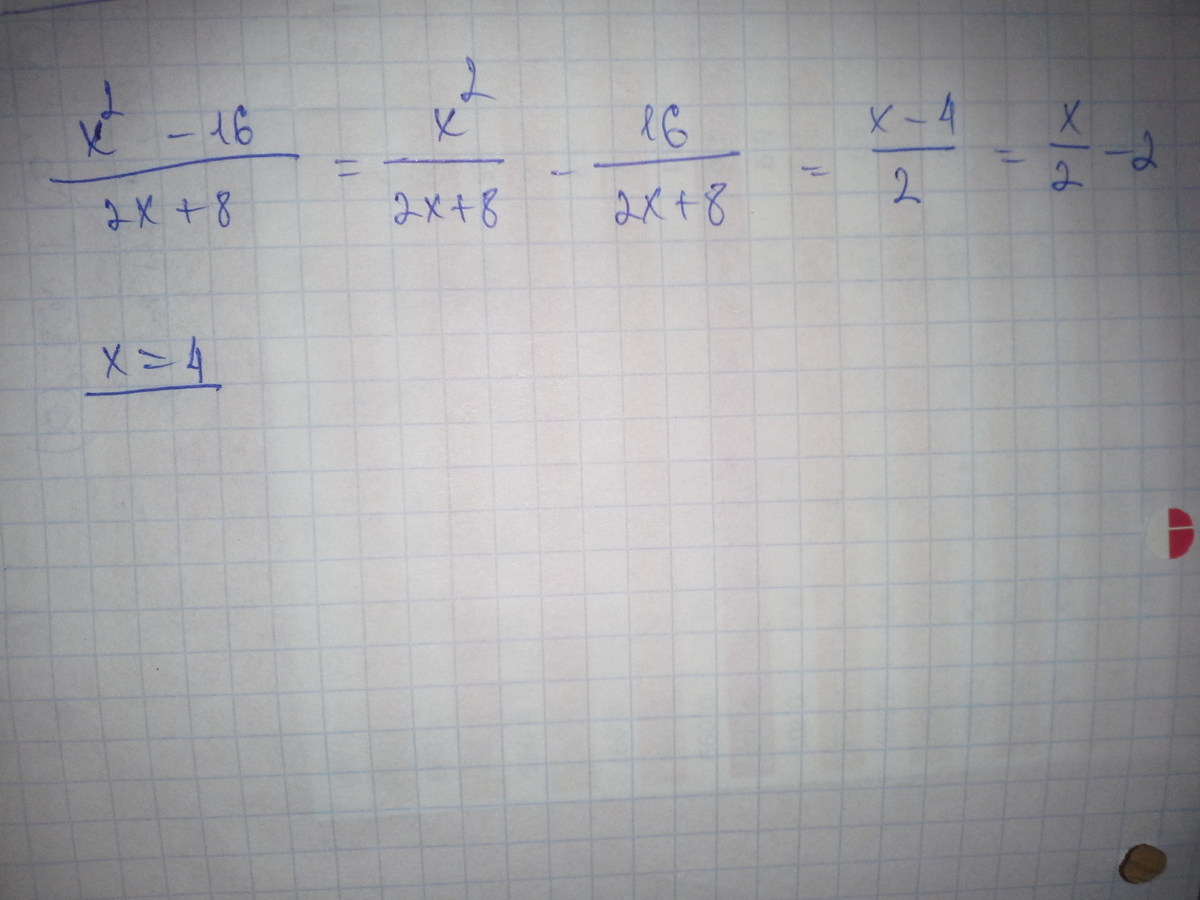 x² - 16 / 2x + 8 = x² / 2x + 8 - 16 / 2x + 8 = x - 4 / 2 = x / 2 - 2
x = 4